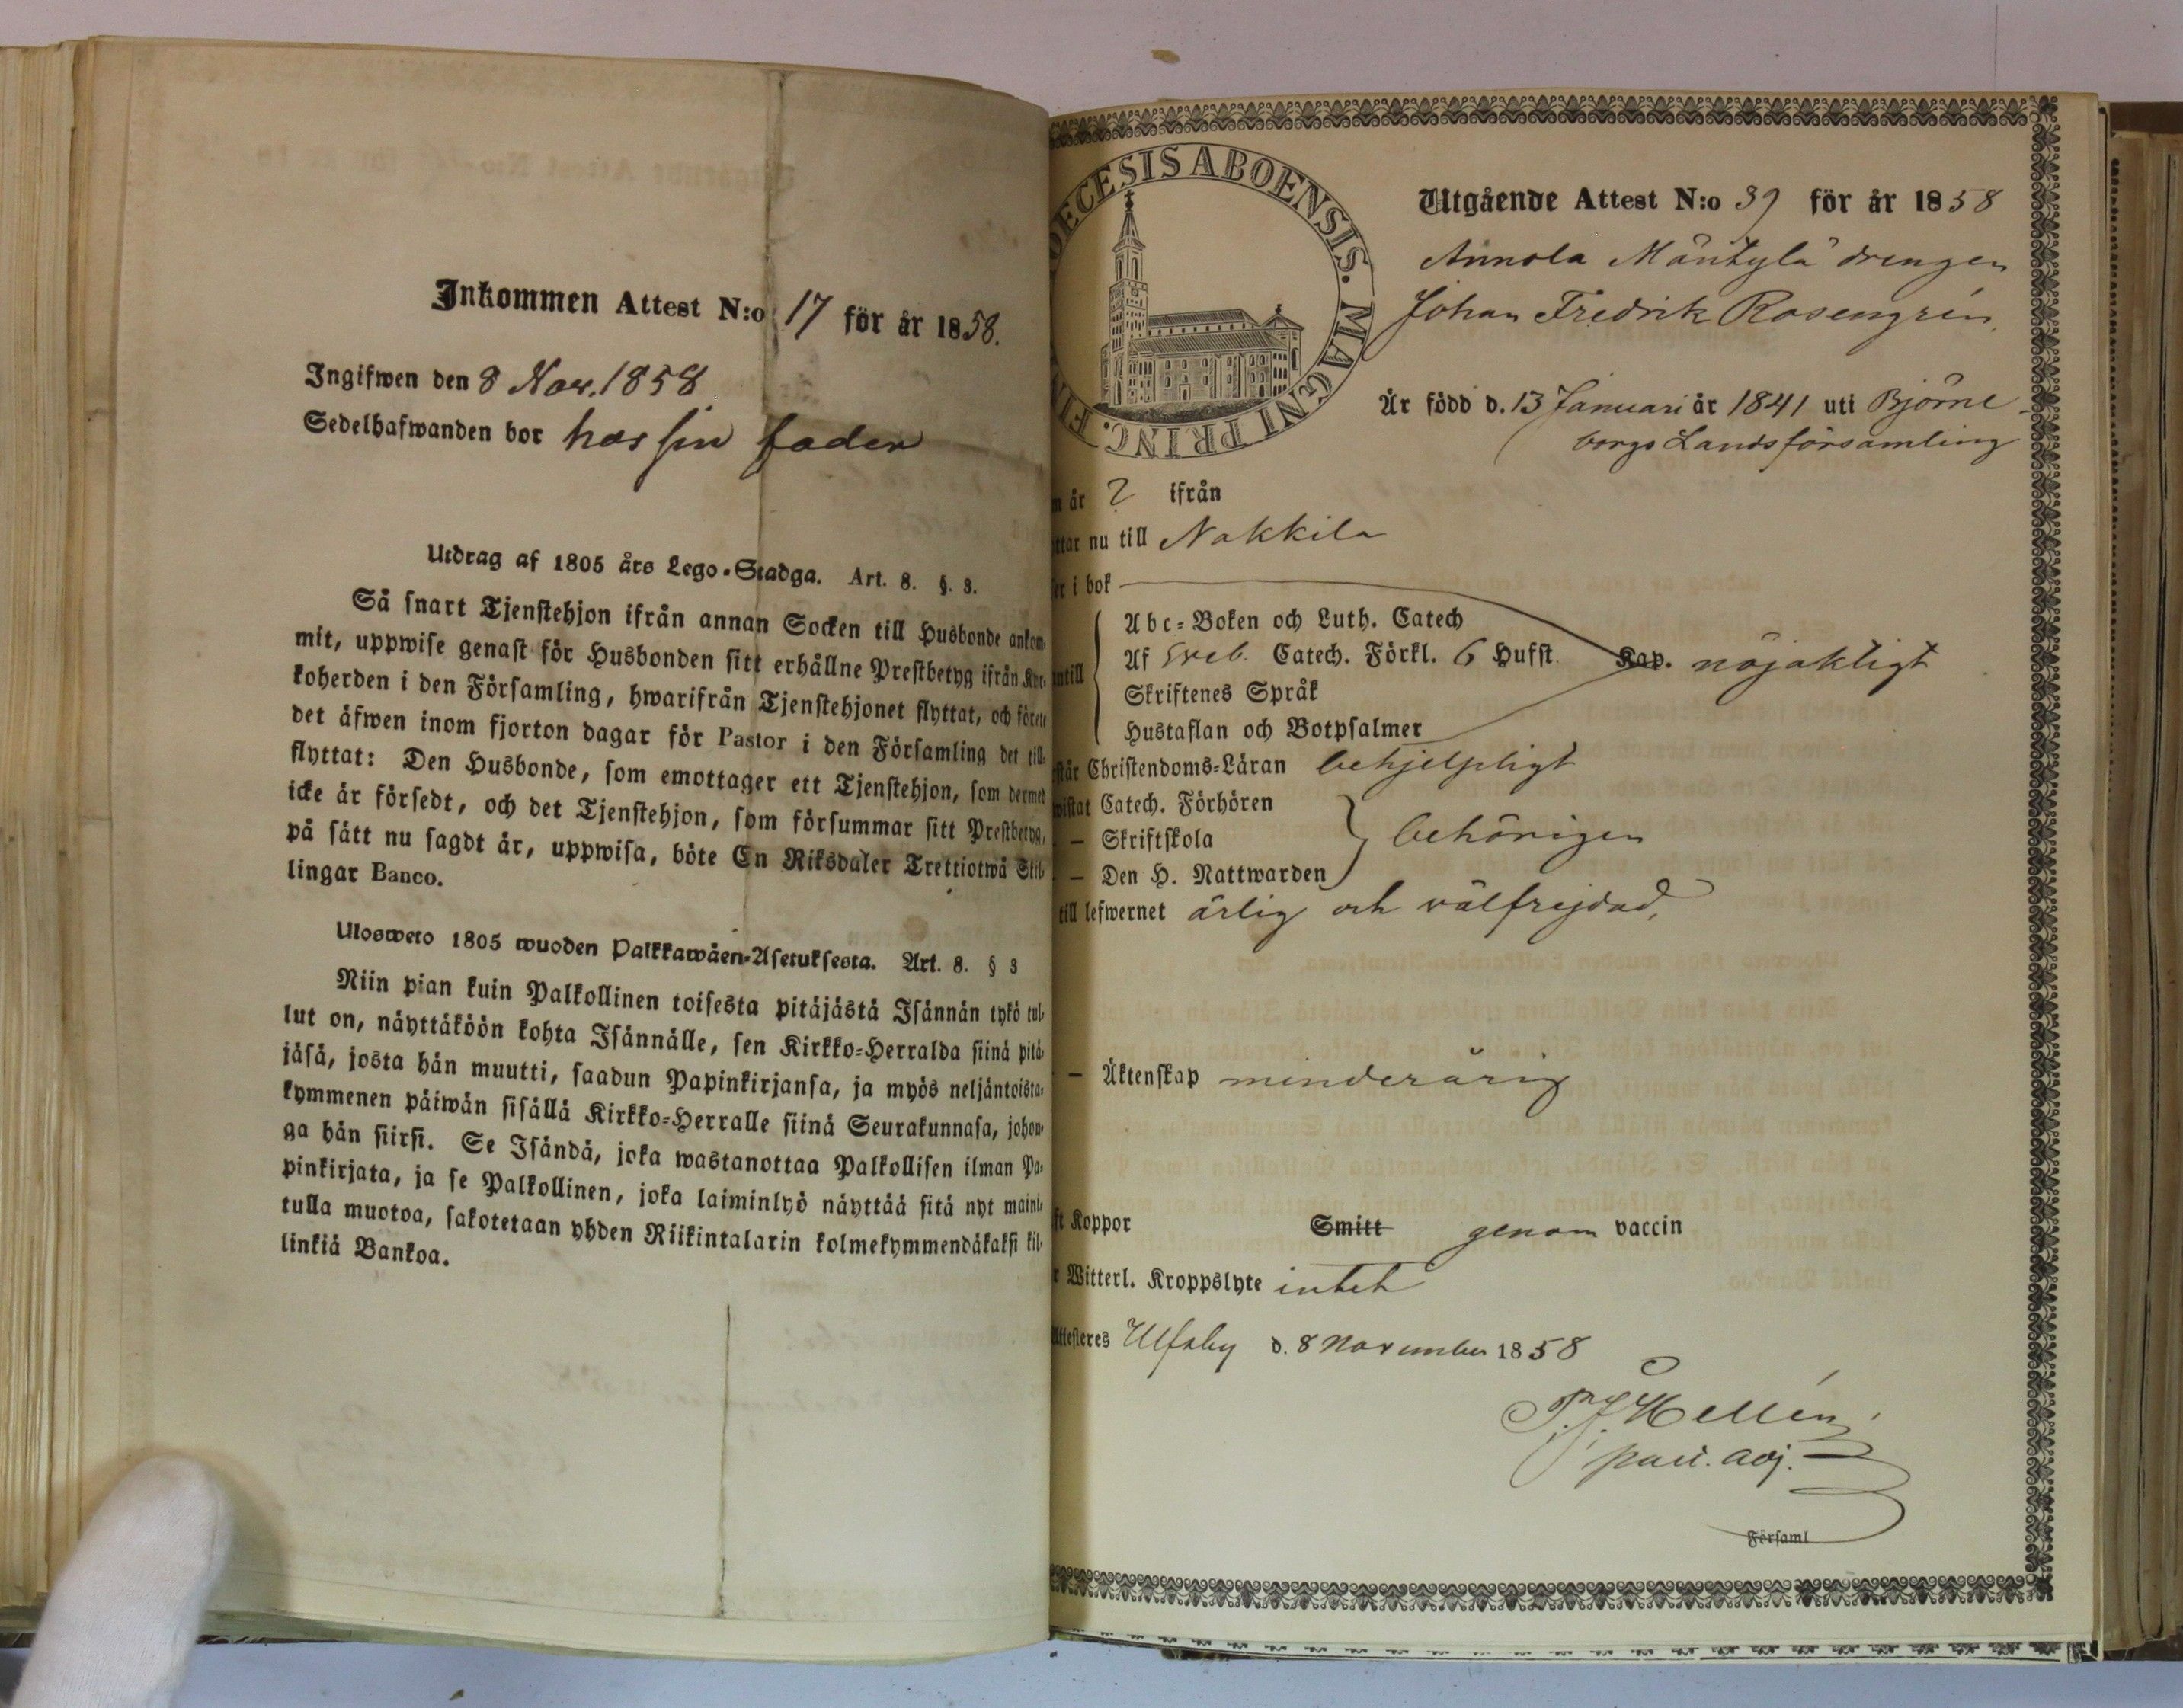 Inkommen Attest N:o 17 för år 1858.
Ingifwen den 8 Nov. 1858
Sedelhafwanden bor hos sin fader
Utdrag af 1805 års Lego-Stadga. Art. 8. §. 3.
Så snart Tjenstehjon ifrån annan Socken till Husbonde ankom-
mit, uppwise genast för Husbonden sitt erhållne Prestbetyg ifrån Kyr-
koherden i den Församling, hwarifrån Tjenstehjonet flyttat, och förete
det äfwen inom fjorton dagar för Pastor i den Församling det till-
flyttat: Den Husbonde, som emottager ett Tjenstehjon, som dermed
icke är försedt, och det Tjenstehjon, som försummar sitt Prestbetyg,
på sätt nu sagdt är, uppwisa, böte En Riksdaler Trettiotwå Skil-
lingar Banco.
Ulosweto 1805 wuoden Palkkawäen-Asetuksesta. Art. 8. § 3
Niin pian kuin Palkollinen toisesta pitäjästä Isännän tykö tul-
lut on, näyttäköön kohta Isännälle, sen Kirkko-Herralda siinä pitä-
jäsä, josta hän muutti, saadun Papinkirjansa, ja myös neljäntoista-
kymmenen päiwän sisällä Kirkko-Herralle siinä Seurakunnasa, johon-
ga hän siirsi. Se Isändä, joka wastanottaa Palkollisen ilman Pa-
pinkirjata, ja se Palkollinen, joka laiminlyö näyttää sitä nyt maini-
tulla muotoa, sakotetaan yhden Riikintalarin kolmekymmendäkaksi kil-
linkiä Bankoa.
DECESIS ABOENSIS. MAGNI PRINC. FIN
Utgående Attest N:o 39 för år 1858
Annola Mäntylä drengen
Johan Fredrik Rosengrén
Är född d. 13 Januari år 1841 uti Björne-
borgs Landsförsamling
n år ? ifrån
ttar nu till Nakkila
er i bok
Abc-Boken och Luth. Catech
Af Sveb. Catech. Förkl. 6 Hufst. Kap. nöjaktigt
ntill
Skriftenes Språk
Hustaflan och Botpsalmer
står Christendoms-Läran behjelpligt
wistat Catech. Förhören
— Skriftskola behörigen
— Den H. Nattwarden
till lefwernet ärlig och välfrejdad,
— Äktenskap minderårig
ft Koppor Smitt genom vaccin
r Witterl. Kroppslyte intet
Attesteres Ulfsby d. 8 November 1858
Hellén
past. adj.
Församl